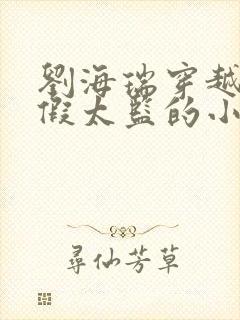 劉海瑞穿越
假太監的小
尋仙芳草